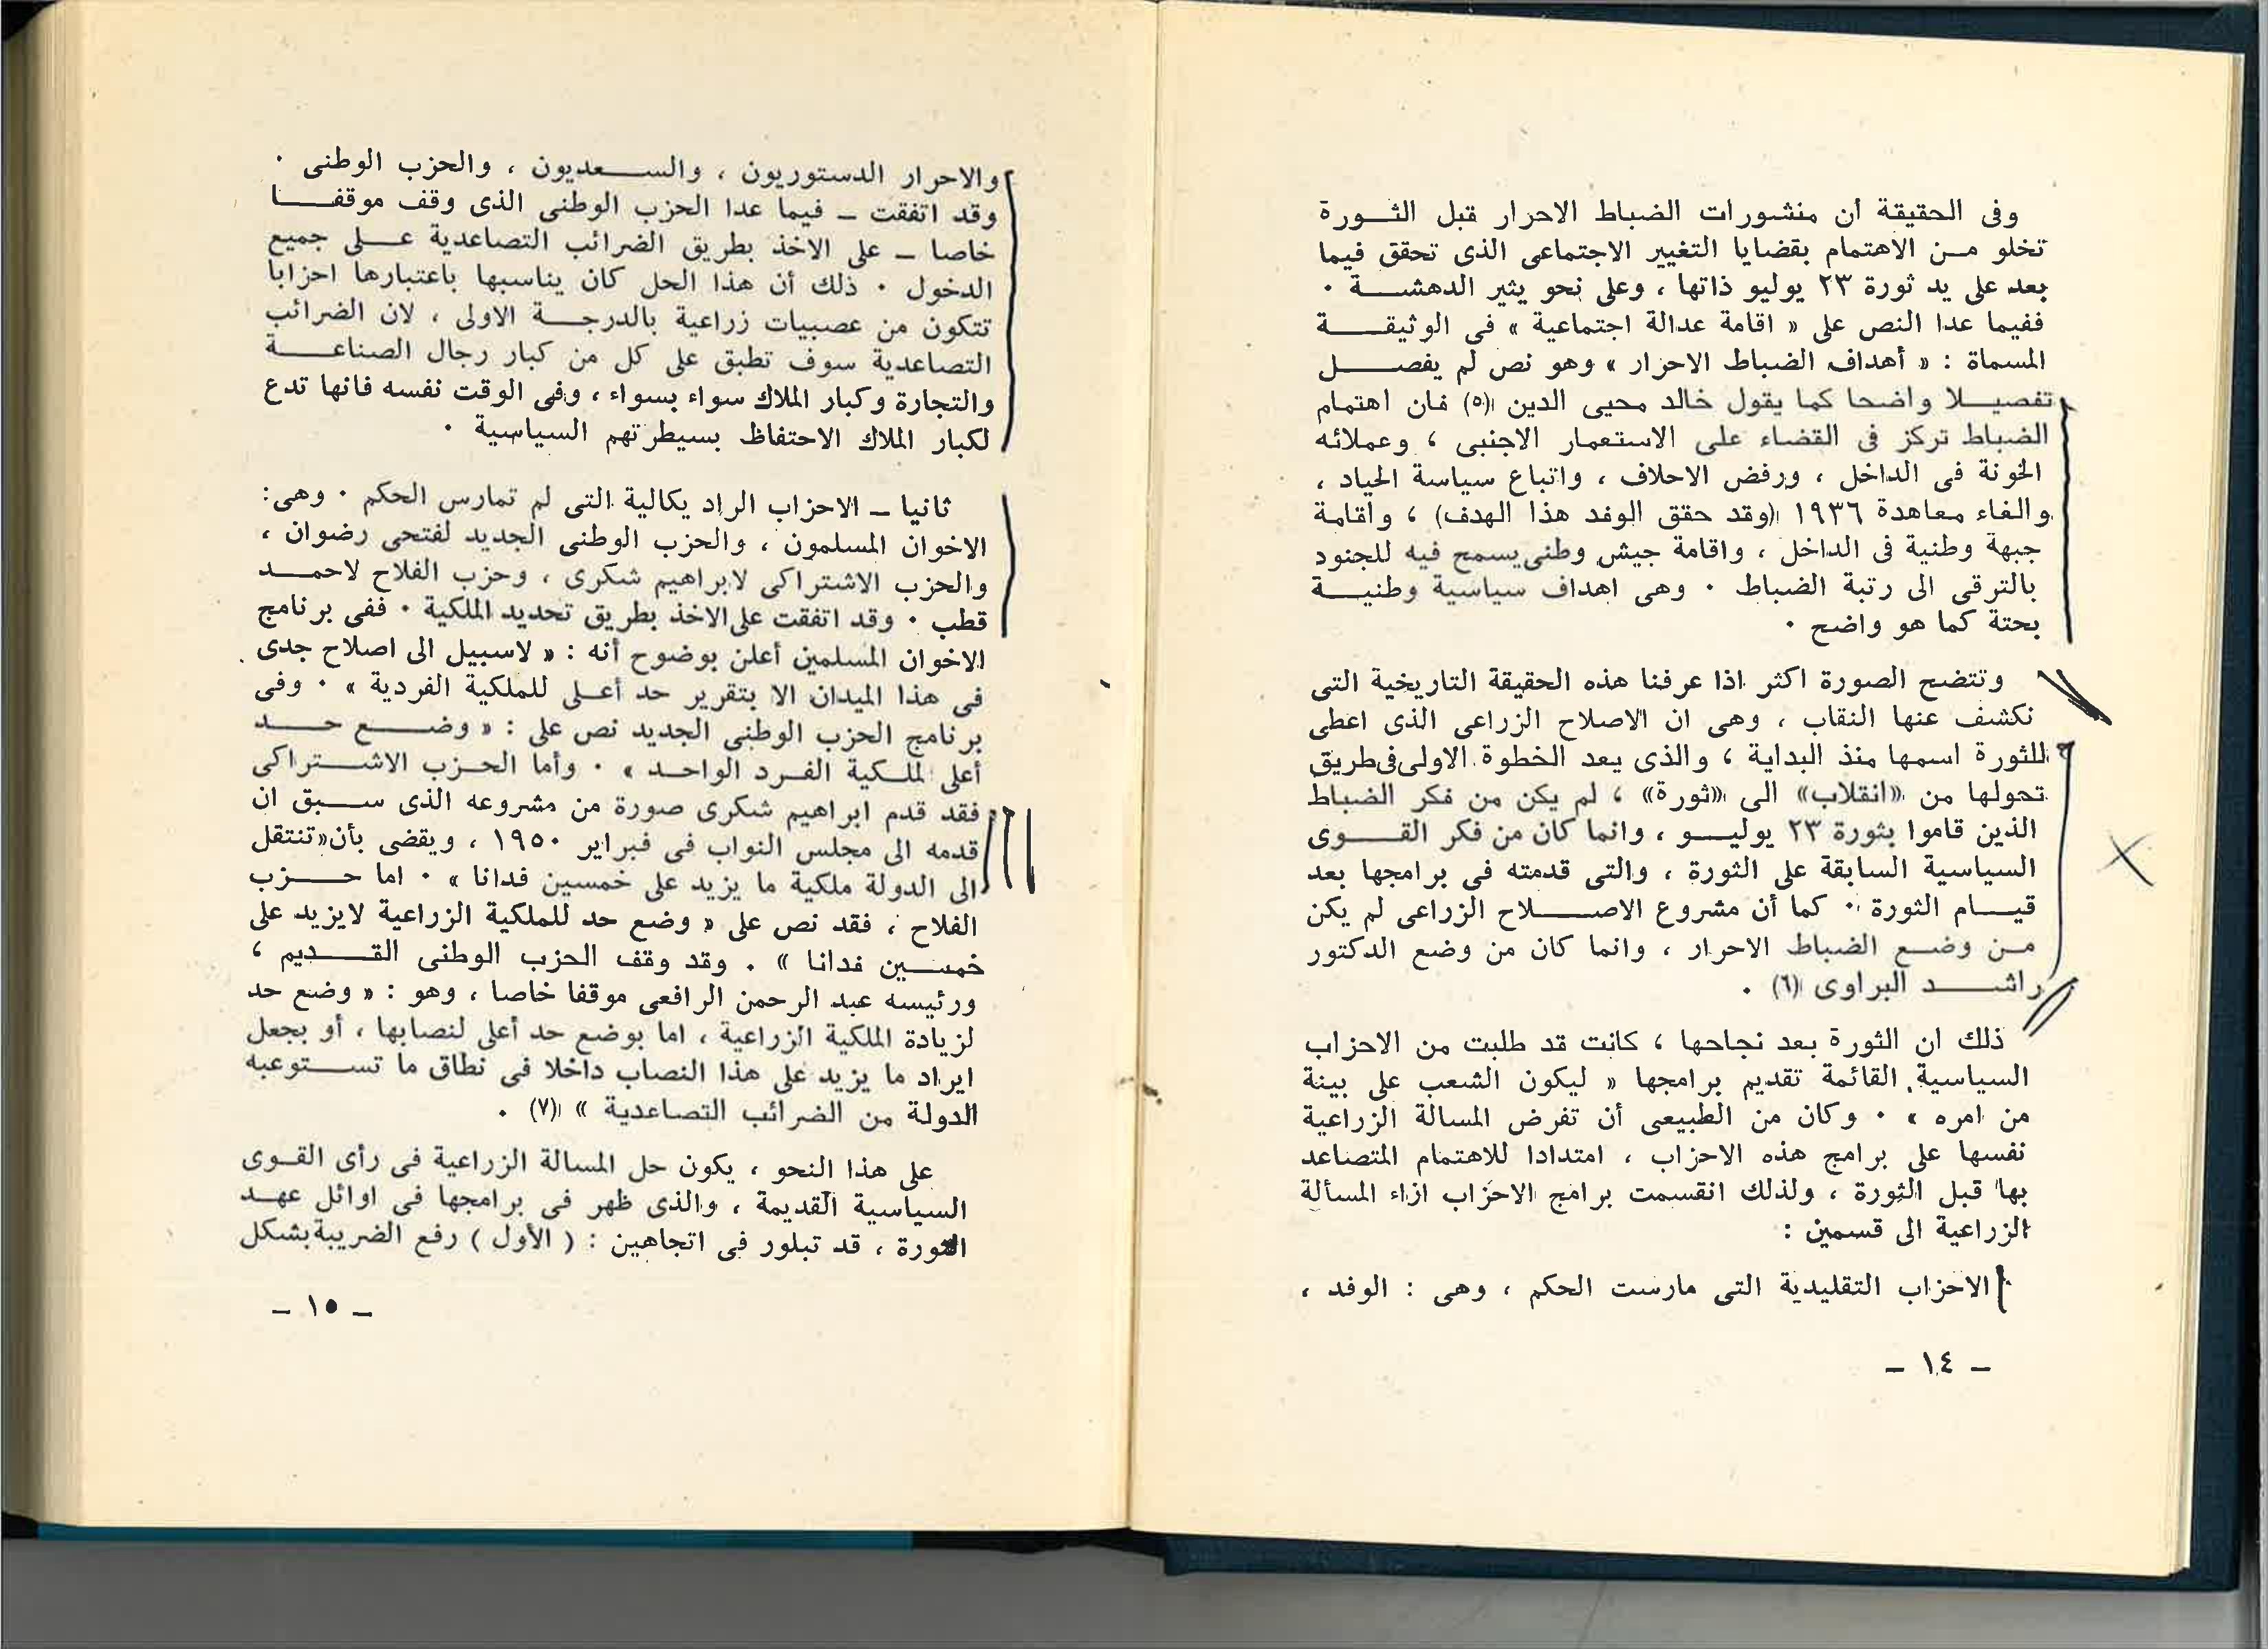 وفى الحقيقة أن منشورات الضباط الاحرار قبل الثورة
تخلو من الاهتمام بقضايا التغيير الاجتماعى الذى تحقق فيما
بعد على يد ثورة ٢٣ يوليو ذاتها ، وعلى نحو يثير الدهشة ٠
ففيما عدا النص على « اقامة عدالة اجتماعية » فى الوثيقة
المسماة : « أهداف الضباط الاحرار » وهو نص لم يفصل
تفصيلا واضحا كما يقول خالد محيى الدين (٥) فان اهتمام
الضباط تركز فى القضاء على الاستعمار الاجنبى ، وعملائه
الخونة فى الداخل ، ورفض الاحلاف ، واتباع سياسة الحياد ،
والغاء معاهدة ١٩٣٦ (وقد حقق الوفد هذا الهدف) ، واقامة
جبهة وطنية فى الداخل ، واقامة جيش وطنى يسمح فيه للجنود
بالترقى الى رتبة الضباط ٠ وهى اهداف سياسية وطنية
بحتة كما هو واضح ٠
وتتضح الصورة اكثر اذا عرفنا هذه الحقيقة التاريخية التى
نكشف عنها النقاب ، وهى ان الاصلاح الزراعى الذى اعطى
للثورة اسمها منذ البداية ، والذى يعد الخطوة الاولى فى طريق
تحولها من «انقلاب» الى «ثورة» ، لم يكن من فكر الضباط
الذين قاموا بثورة ٢٣ يوليو ، وانما كان من فكر القوى
السياسية السابقة على الثورة ، والتى قدمته فى برامجها بعد
قيام الثورة ٠ كما أن مشروع الاصلاح الزراعى لم يكن
من وضع الضباط الاحرار ، وانما كان من وضع الدكتور
راشد البراوى (٦) ٠
ذلك ان الثورة بعد نجاحها ، كانت قد طلبت من الاحزاب
السياسية القائمة تقديم برامجها « ليكون الشعب على بينة
من امره » ٠ وكان من الطبيعى أن تفرض المسالة الزراعية
نفسها على برامج هذه الاحزاب ، امتدادا للاهتمام المتصاعد
بها قبل الثورة ، ولذلك انقسمت برامج الاحزاب ازاء المسألة
الزراعية الى قسمين :
الاحزاب التقليدية التى مارست الحكم ، وهى : الوفد ،
ـ ١٤ ـ
والاحرار الدستوريون ، والسعديون ، والحزب الوطنى ٠
وقد اتفقت ـ فيما عدا الحزب الوطنى الذى وقف موقفا
خاصا ـ على الاخذ بطريق الضرائب التصاعدية على جميع
الدخول ٠ ذلك أن هذا الحل كان يناسبها باعتبارها احزابا
تتكون من عصبيات زراعية بالدرجة الاولى ، لان الضرائب
التصاعدية سوف تطبق على كل من كبار رجال الصناعة
والتجارة وكبار الملاك سواء بسواء ، وفى الوقت نفسه فانها تدع
لكبار الملاك الاحتفاظ بسيطرتهم السياسية ٠
ثانيا ـ الاحزاب الراد يكالية التى لم تمارس الحكم ٠ وهى:
الاخوان المسلمون ، والحزب الوطنى الجديد لفتحى رضوان ،
والحزب الاشتراكى لابراهيم شكرى ، وحزب الفلاح لاحمد
قطب ٠ وقد اتفقت على الاخذ بطريق تحديد الملكية ٠ ففى برنامج
الاخوان المسلمين أعلن بوضوح أنه : « لاسبيل الى اصلاح جدى
فى هذا الميدان الا بتقرير حد أعلى للملكية الفردية » ٠ وفى
برنامج الحزب الوطنى الجديد نص على : « وضع حد
أعلى لملكية الفرد الواحد » ٠ وأما الحزب الاشتراكى
فقد قدم ابراهيم شكرى صورة من مشروعه الذى سبق ان
قدمه الى مجلس النواب فى فبراير ١٩٥٠ ، ويقضى بأن«تنتقل
الى الدولة ملكية ما يزيد على خمسين فدانا » ٠ اما حزب
الفلاح ، فقد نص على « وضع حد للملكية الزراعية لايزيد على
خمسين فدانا » ٠ وقد وقف الحزب الوطنى القديم ،
ورئيسه عبد الرحمن الرافعى موقفا خاصا ، وهو : « وضع حد
لزيادة الملكية الزراعية ، اما بوضع حد أعلى لنصابها ، أو بجعل
ايراد ما يزيد على هذا النصاب داخلا فى نطاق ما تستوعبه
الدولة من الضرائب التصاعدية » (٧) ٠
على هذا النحو ، يكون حل المسالة الزراعية فى رأى القوى
السياسية القديمة ، والذى ظهر فى برامجها فى اوائل عهد
الثورة ، قد تبلور فى اتجاهين : ( الأول ) رفع الضريبة بشكل
ـ ١٥ ـ